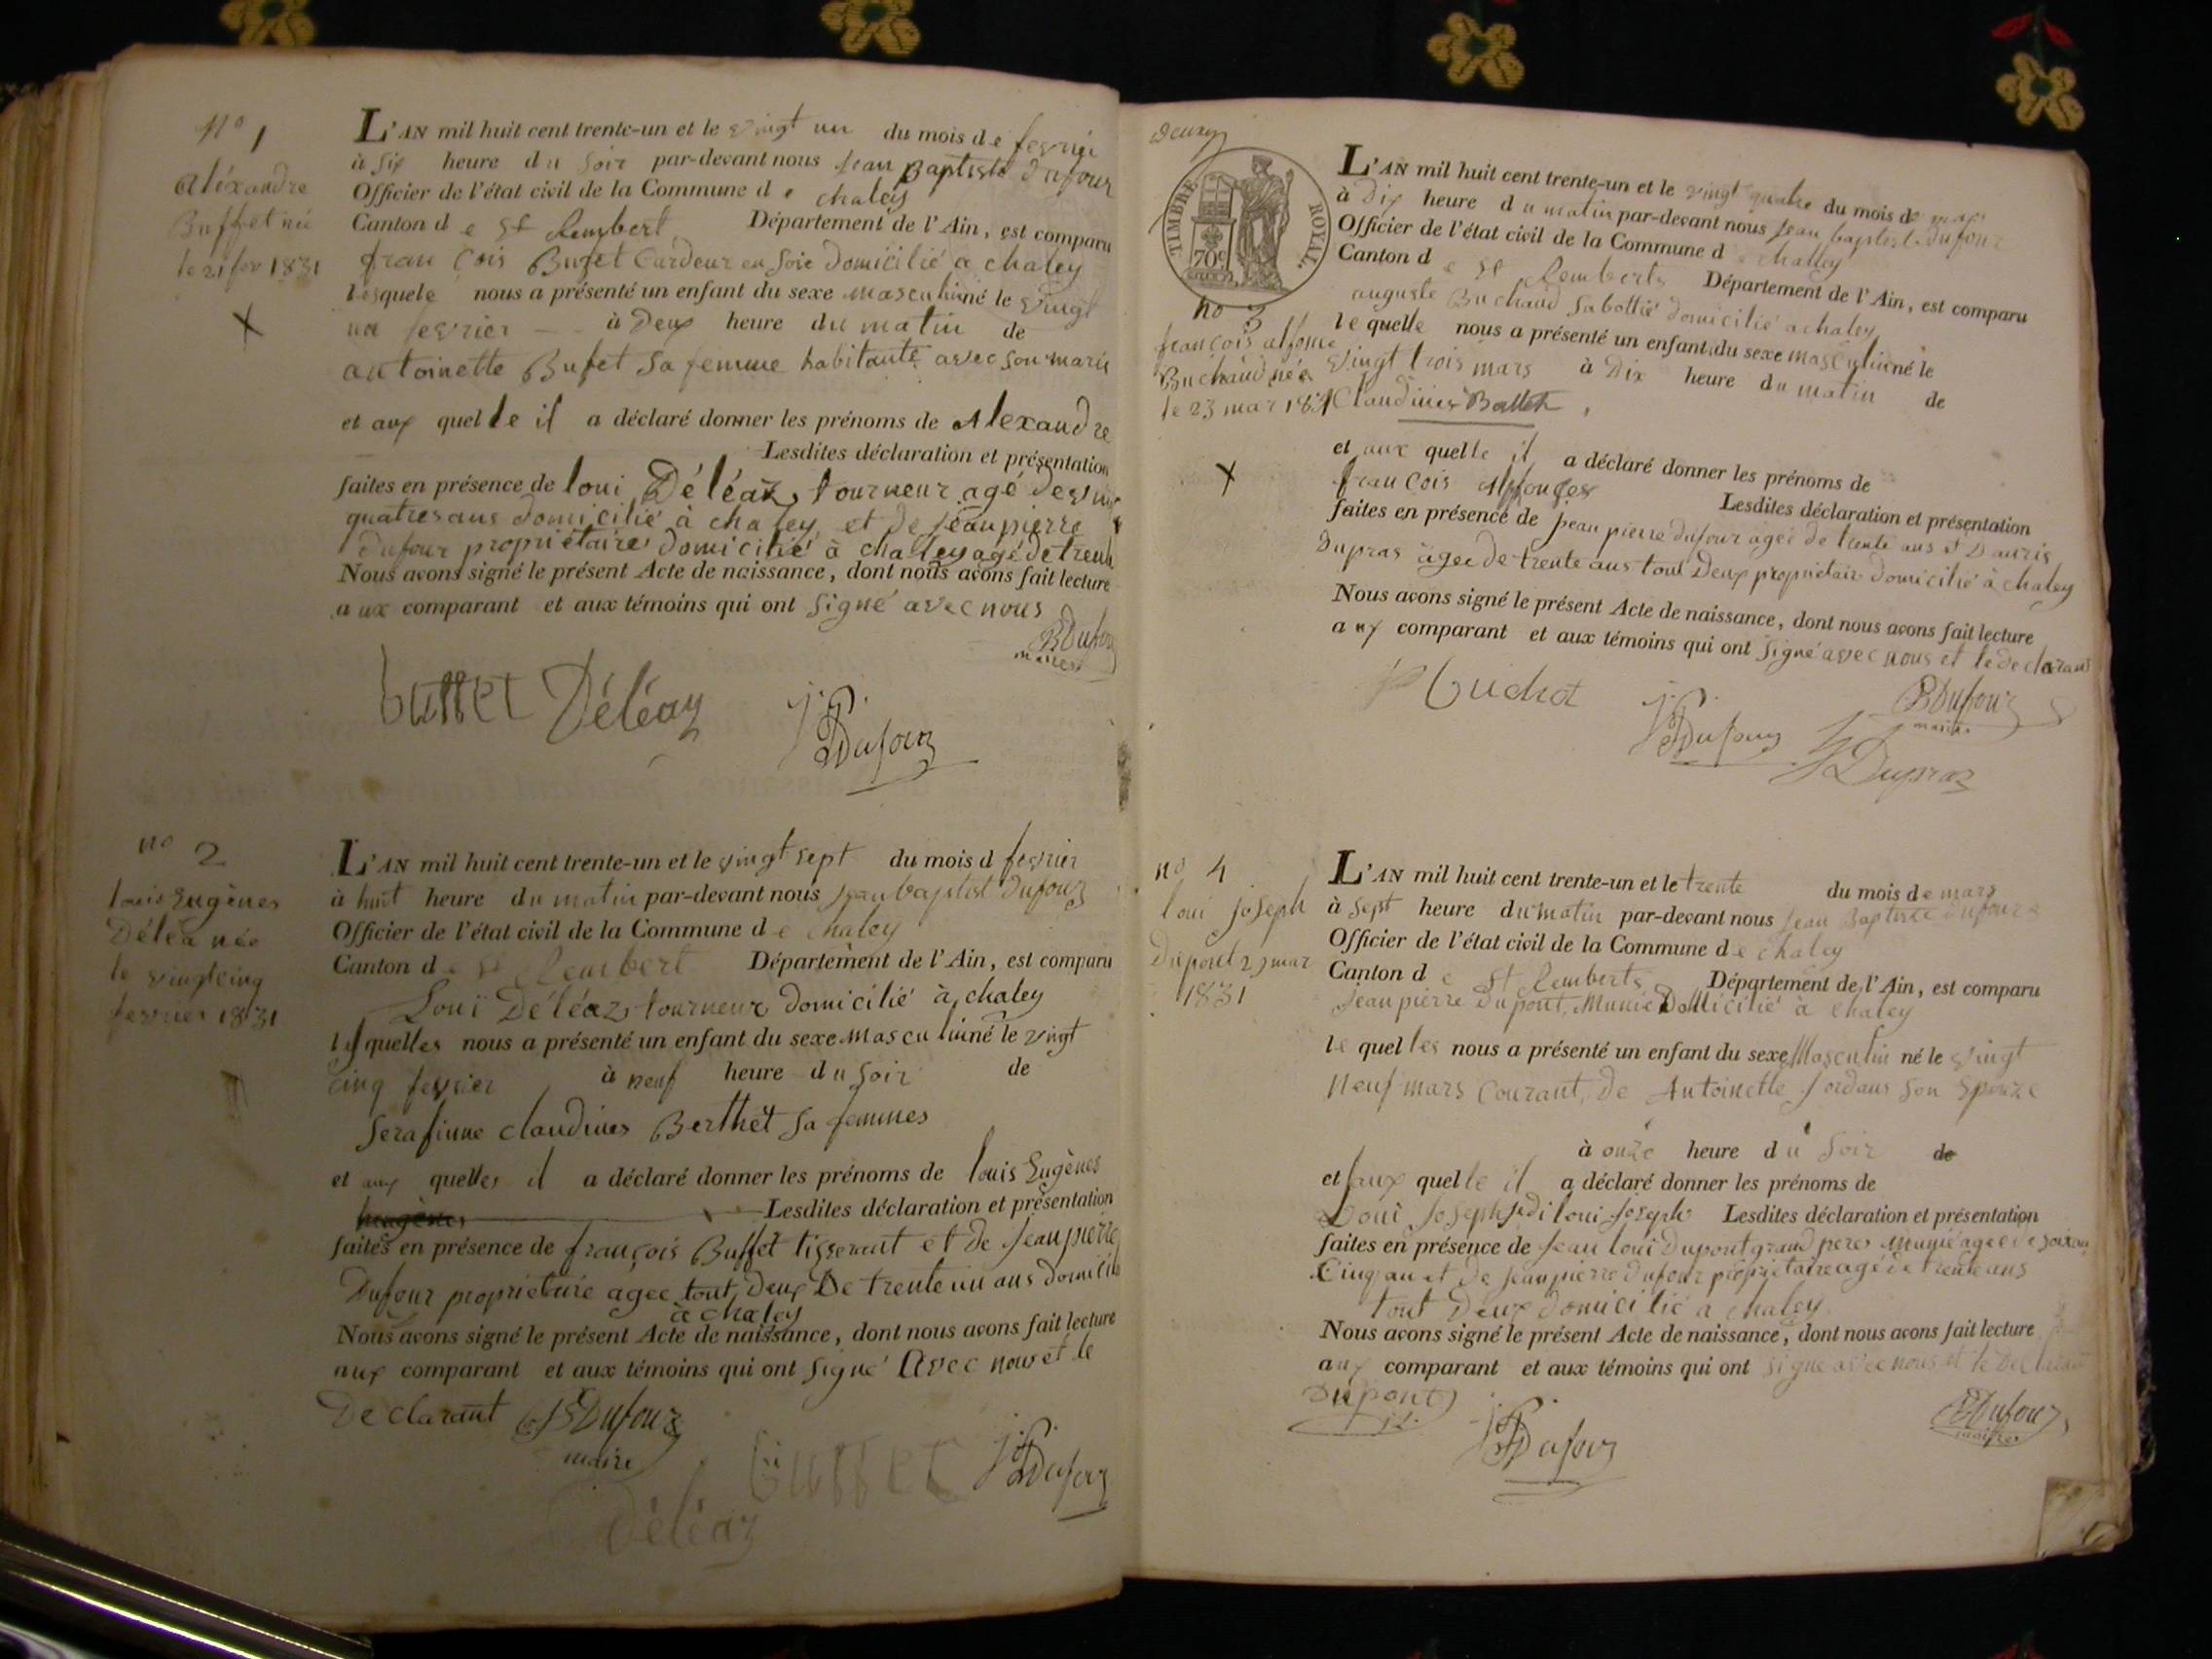 No 1
Aléxandre
Buffet né
le 21 fev 1831
L'AN mil huit cent trente-un et le vingt un du mois de fevrié
à six heure du soir par-devant nous jean Baptiste dufour
Officier de l'état civil de la Commune de chaley
Canton de St Rembert Département de l'Ain, est comparu
fran Cois Bufet Cardeur en soie domicilié a chaley
lesquele nous a présenté un enfant du sexe masculin né le vingt
un fevrier à deux heure du matin de
antoinette Bufet sa femme habitante avec son marie
et aux quelle il a déclaré donner les prénoms de Alexandre
Lesdites déclaration et présentation
faites en présence de loui Déléaz tourneur agé de vingt
quatres ans domicilié à chaley et de jean pierre
dufour propriétaires domicilié à chaley agé de trente
Nous avons signé le présent Acte de naissance, dont nous avons fait lecture
aux comparant et aux témoins qui ont signé avec nous
BDufour
maire
buffet Déléaz J.P. Dufour
no 2
louis Eugènes
Déléa née
le vingt cinq
fevrier 1831
L'AN mil huit cent trente-un et le vingt sept du mois d fevrier
à huit heure du matin par-devant nous jean baptist Dufour
Officier de l'état civil de la Commune de chaley
Canton de St Rembert Département de l'Ain, est comparu
Loui Déléaz tourneur domicilié à chaley
lesquelles nous a présenté un enfant du sexe masculin né le vingt
cinq fevrier à neuf heure du soir de
Serafinne claudines Berthet sa femmes
et aux quelles il a déclaré donner les prénoms de louis Eugènes
Lesdites déclaration et présentation
faites en présence de françois Buffet tisserant et de jean pierre
Dufour propriétaire agee tout deux De trente un ans domicilié
à chaley
Nous avons signé le présent Acte de naissance, dont nous avons fait lecture
aux comparant et aux témoins qui ont signé avec nous et le
Declarant BDufour
maire
buffet J.P. Dufour
Déléaz
deux
TIMBRE ROYAL.
70c
no 3
francois alfonse
Buchaud née
le 23 mar 1831
L'AN mil huit cent trente-un et le vingt quatre du mois de mars
à dix heure du matin par-devant nous jean baptist Dufour
Officier de l'état civil de la Commune de challey
Canton de St Remberts Département de l'Ain, est comparu
auguste Buchaud sabottié domicilié a chaley
lequelle nous a présenté un enfant du sexe masculin né le
vingt trois mars à dix heure du matin de
Claudines Ballet
et aux quelle il a déclaré donner les prénoms de
fran Cois Alfonses Lesdites déclaration et présentation
faites en présence de jean pierre dufour agée de trente ans et
Dupras agee de trente ans tout Deux propriétair domicilié à chaley
Nous avons signé le présent Acte de naissance, dont nous avons fait lecture
aux comparant et aux témoins qui ont signé avec nous et le declarant
J.P. Dufour BDufour
maire
Dupraz
no 4
loui joseph
Dupont 29 mar
1831
L'AN mil huit cent trente-un et le trente du mois de mars
à sept heure du matin par-devant nous jean Baptiste dufour
Officier de l'état civil de la Commune de chaley
Canton de St Remberts Département de l'Ain, est comparu
jean pierre Dupont, Munié Domicilié à chaley
lequelles nous a présenté un enfant du sexe Masculin né le vingt
neuf mars Courant, de Antoinette jordans son Epouze
à onze heure du soir de
et aux quelle il a déclaré donner les prénoms de
Loui joseph je di loui joseph Lesdites déclaration et présentation
faites en présence de jean loui Dupont grand peres munié agee de soixan
Cinq an et de jean pierre dufour propriétaire agé de trente ans
tout Deux domicilié a chaley
Nous avons signé le présent Acte de naissance, dont nous avons fait lecture
aux comparant et aux témoins qui ont signé avec nous et le Declarant
Dupont
J.P. Dufour
BDufour
maire